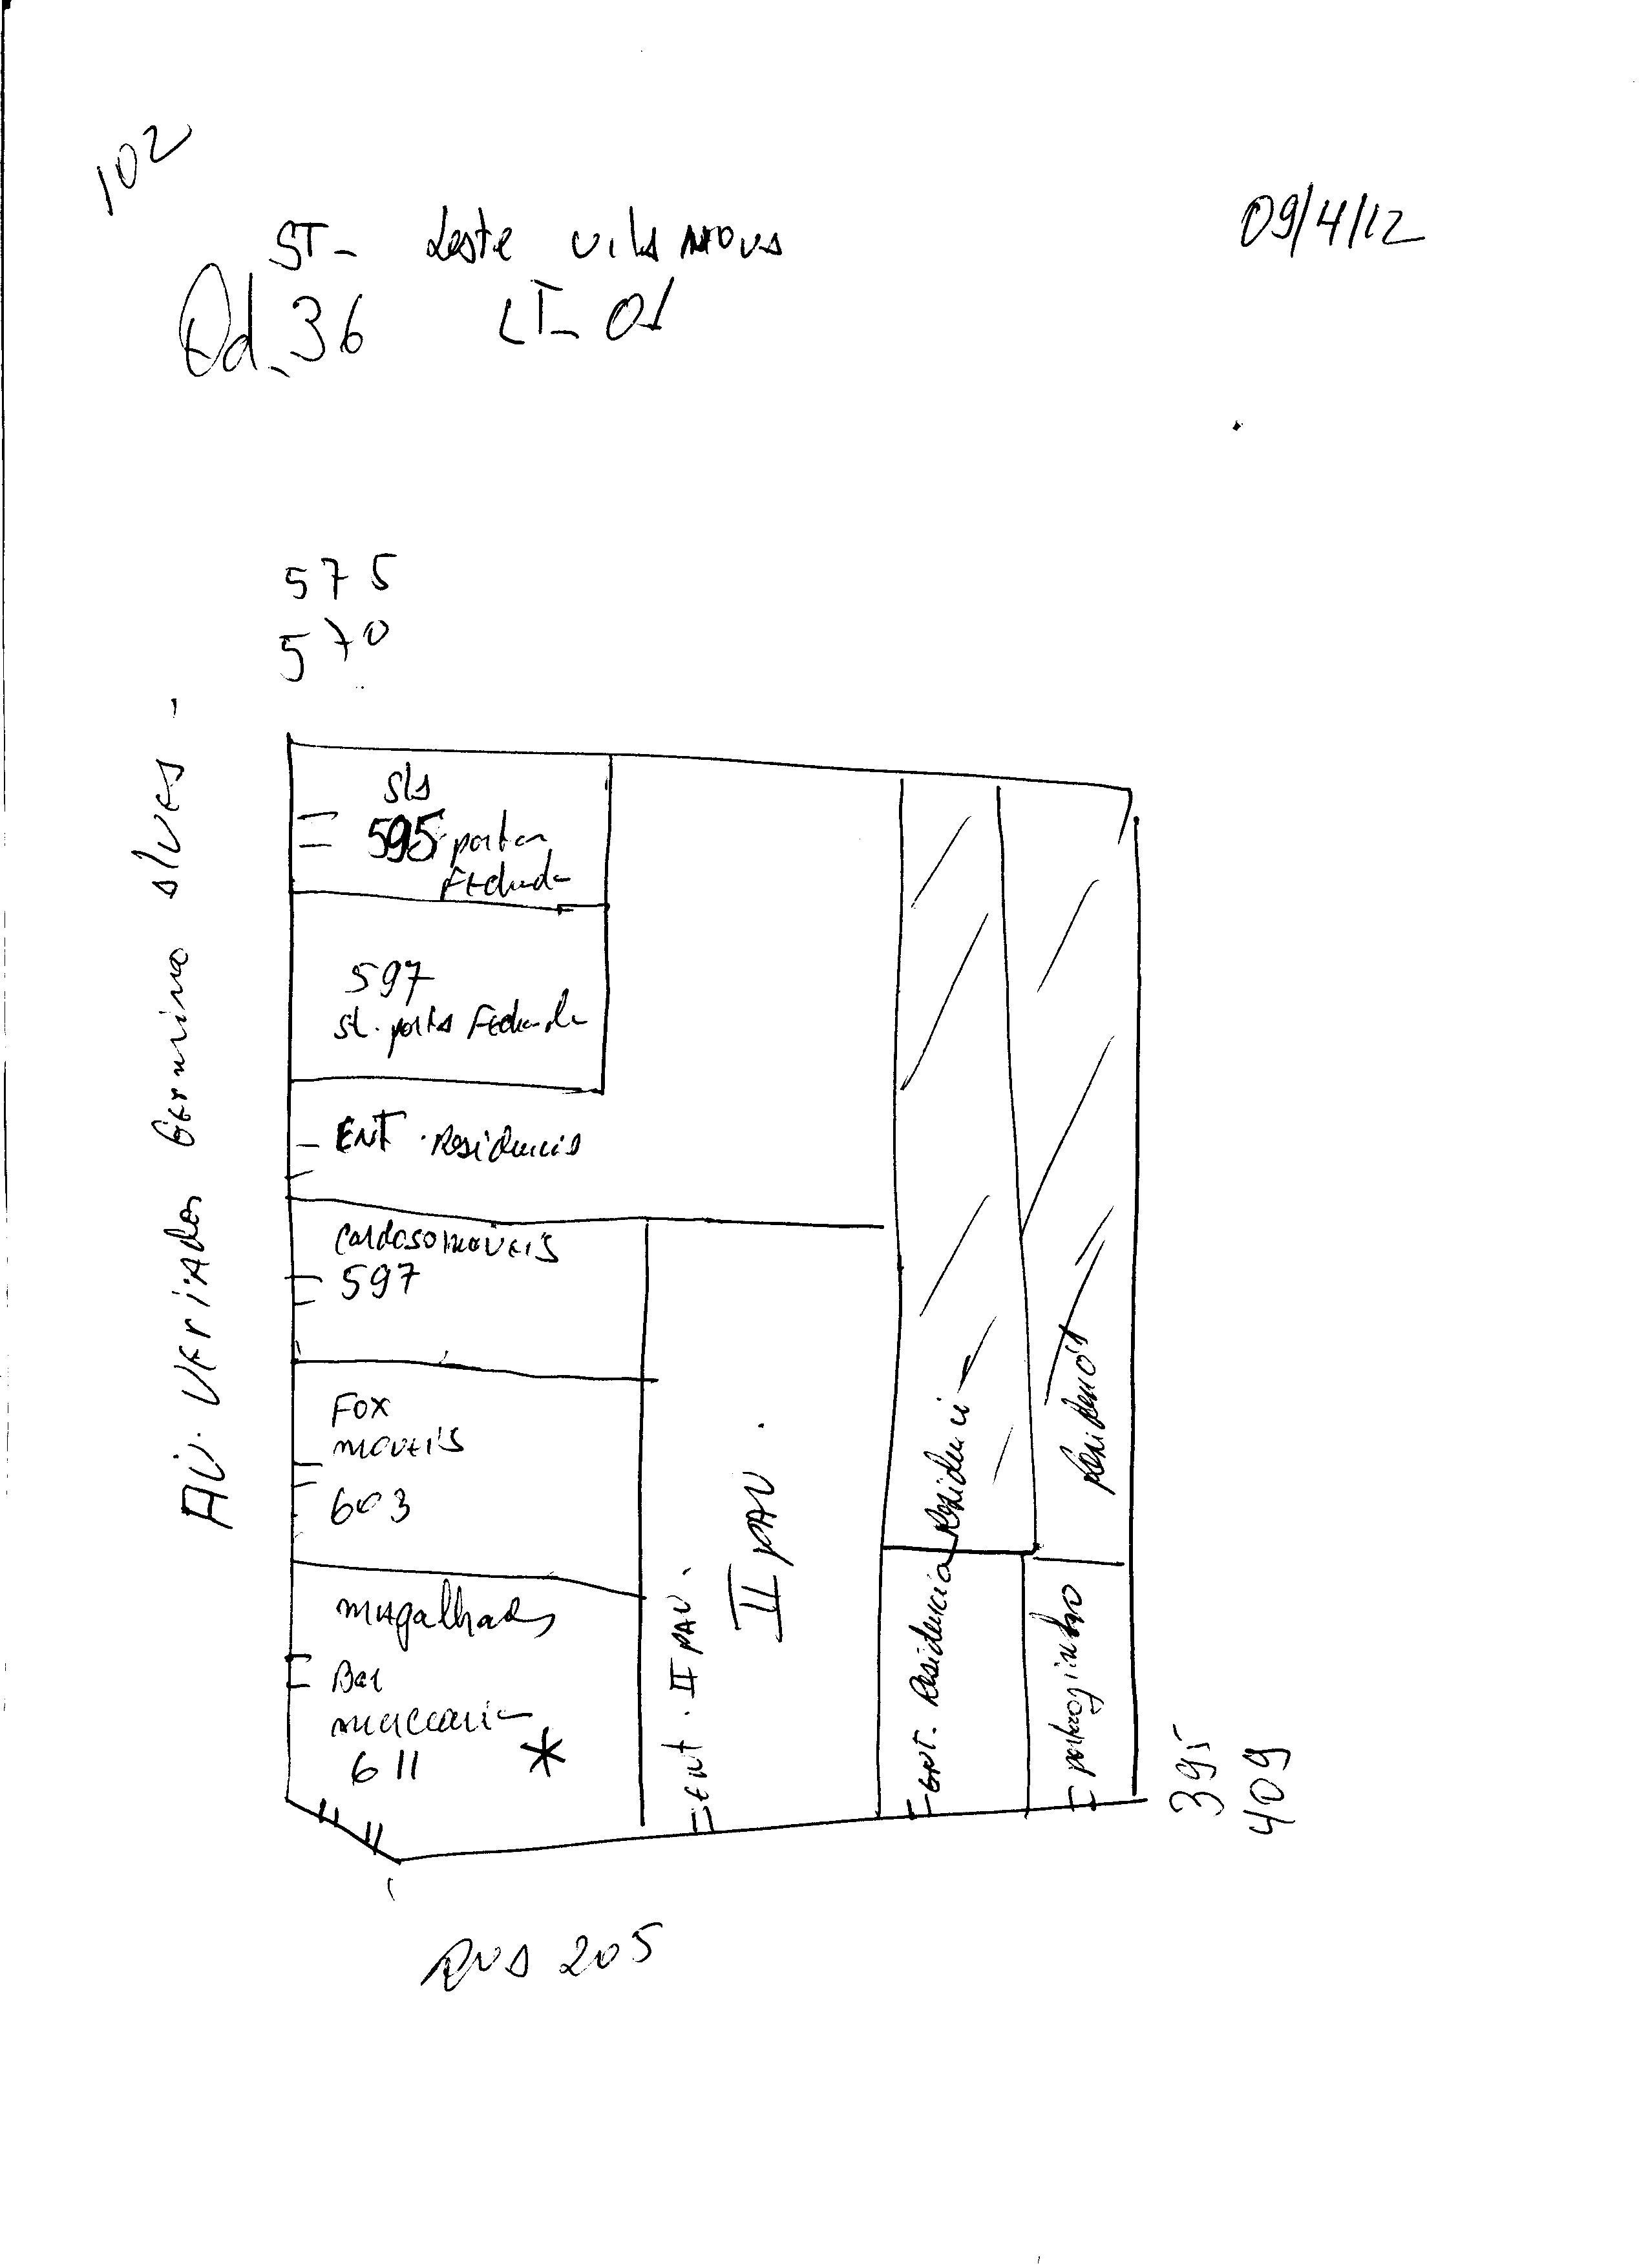 102
09/4/12
ST- Leste vila nova
Qd. 36 LT- 01
575
570
AV. VEriador Germino Alves -
sla
595 portas
FEchada
597
sl. portas FEchada
ENT. Residencia
Cardoso moveis
597
FOX
moveis
603
magalhaes
Bar
mercearia
611 *
ENT. II PAV.
II PAV.
ENT. Residencia
Residenci
Residencia
portaozinho
395
409
RUA 205